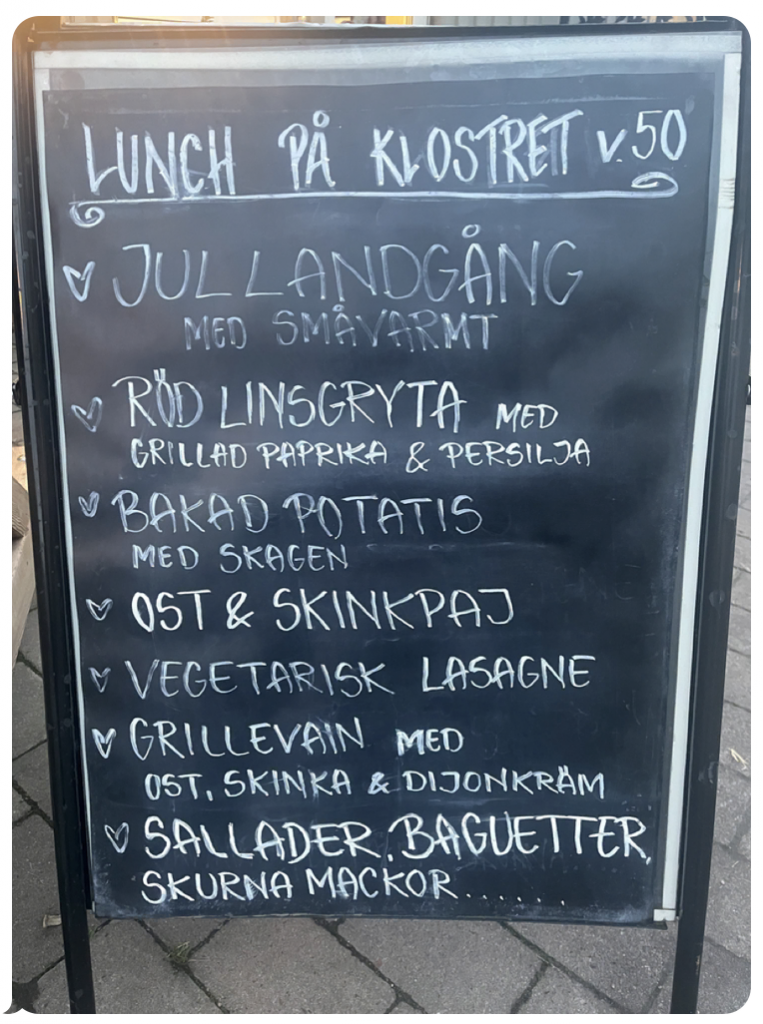 LUNCH PÅ KLOSTRET v.50
JULLANDGÅNG
MED SMÅVARMT
RÖD LINSGRYTA MED
GRILLAD PAPRIKA & PERSILJA
BAKAD POTATIS
MED SKAGEN
OST & SKINKPAJ
VEGETARISK LASAGNE
GRILLEVAIN MED
OST, SKINKA & DIJONKRÄM
SALLADER, BAGUETTER,
SKURNA MACKOR......